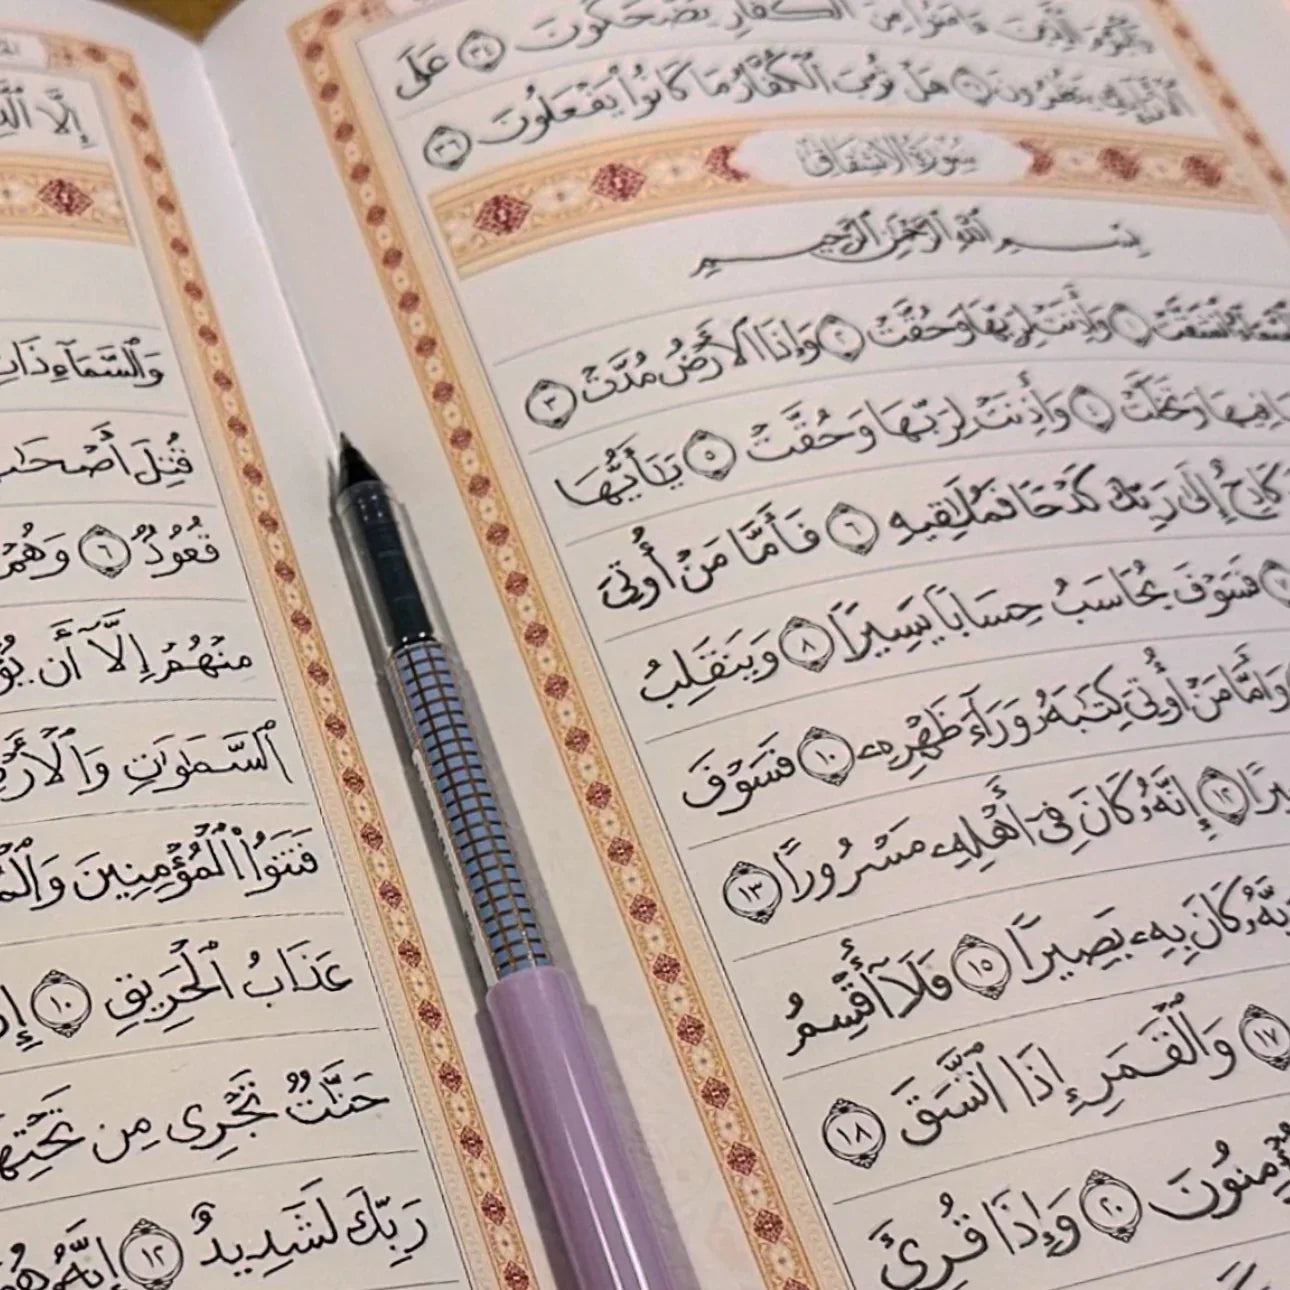 فَٱلْيَوْمَ ٱلَّذِينَ ءَامَنُوا۟ مِنَ ٱلْكُفَّارِ يَضْحَكُونَ ٣٤ عَلَى
ٱلْأَرَآئِكِ يَنظُرُونَ ٣٥ هَلْ ثُوِّبَ ٱلْكُفَّارُ مَا كَانُوا۟ يَفْعَلُونَ ٣٦
سُورَةُ الانشِقَاقِ
بِسْمِ ٱللَّهِ ٱلرَّحْمَٰنِ ٱلرَّحِيمِ
ٱلسَّمَآءُ ٱنشَقَّتْ ١ وَأَذِنَتْ لِرَبِّهَا وَحُقَّتْ ٢ وَإِذَا ٱلْأَرْضُ مُدَّتْ ٣
فِيهَا وَتَخَلَّتْ ٤ وَأَذِنَتْ لِرَبِّهَا وَحُقَّتْ ٥ يَٰٓأَيُّهَا
كَادِحٌ إِلَىٰ رَبِّكَ كَدْحًا فَمُلَٰقِيهِ ٦ فَأَمَّا مَنْ أُوتِىَ
٧ فَسَوْفَ يُحَاسَبُ حِسَابًا يَسِيرًا ٨ وَيَنقَلِبُ
وَأَمَّا مَنْ أُوتِىَ كِتَٰبَهُۥ وَرَآءَ ظَهْرِهِۦ ١٠ فَسَوْفَ
١٢ إِنَّهُۥ كَانَ فِىٓ أَهْلِهِۦ مَسْرُورًا ١٣
كَانَ بِهِۦ بَصِيرًا ١٥ فَلَآ أُقْسِمُ
١٧ وَٱلْقَمَرِ إِذَا ٱتَّسَقَ ١٨
٢٠ وَإِذَا قُرِئَ
إِلَّا
وَٱلسَّمَآءِ ذَاتِ
قُتِلَ أَصْحَٰبُ
قُعُودٌ ٦ وَهُمْ
مِنْهُمْ إِلَّآ أَن
ٱلسَّمَٰوَٰتِ وَٱلْأَرْضِ
فَتَنُوا۟ ٱلْمُؤْمِنِينَ
عَذَابُ ٱلْحَرِيقِ ١٠
جَنَّٰتٌ تَجْرِى مِن تَحْتِهَا
رَبِّكَ لَشَدِيدٌ ١٢ إِنَّهُۥ هُوَ